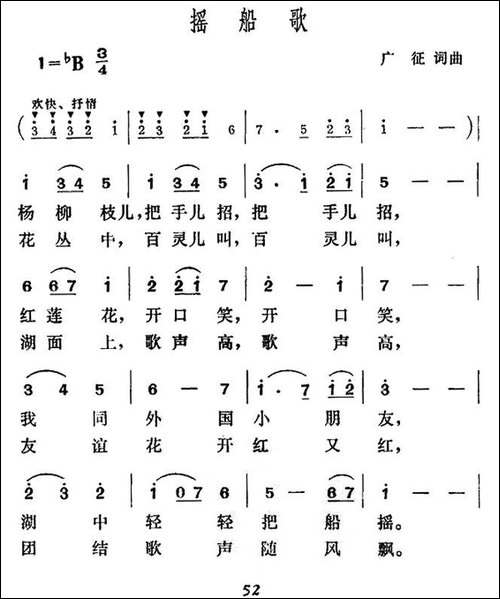 摇船歌
1=♭B 3/4
广征 词曲
欢快、抒情
(3 4 3 2 1 | 2 3 2 1 6 | 7 · 5 2 3 | 1 — — )|
1 3 4 5 | 1 3 4 5 | 3 · 1 2 1 | 5 — — |
杨柳枝儿,把手儿招,把手儿招,
花丛中,百灵儿叫,百灵儿叫,
6 6 7 1 | 2 2 1 7 | 2 — 1 | 7 — — |
红莲花,开口笑,开口笑,
湖面上,歌声高,歌声高,
3 4 5 | 6 — 7 | 1 · 7 | 1 2 3 |
我同外国小朋友,
友谊花开红又红,
2 3 2 | 1 0 7 6 | 5 — 6 7 | 1 — — |
湖中轻轻把船摇。
团结歌声随风飘。
52